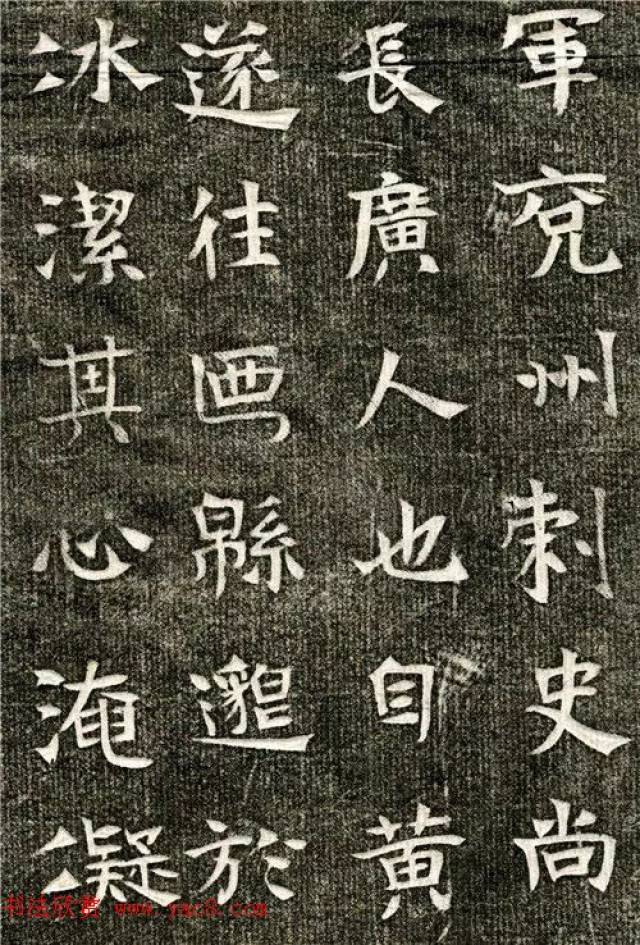 軍兗州刺史尚
長廣人也自黄
遂往画緜邈於
冰潔其心淹凝
书法欣赏 www.yac8.com